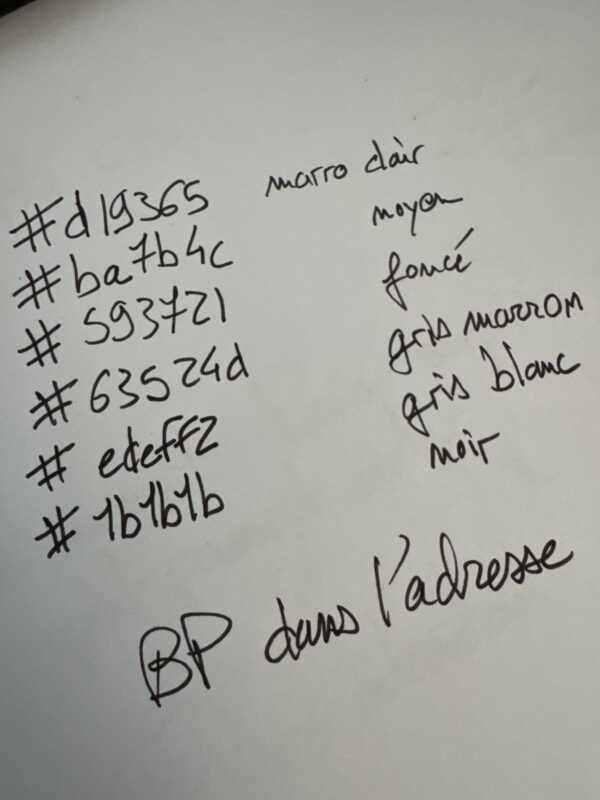 #d19365 marro clair
#ba7b4c moyen
# 593721 foncé
# 63524d gris marron
# edeff2 gris blanc
# 1b1b1b noir
BP dans l'adresse